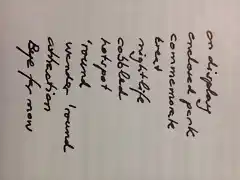 on display
enclosed park
commemorate
treat
nightlife
cobbled
hotspot
'round
wander 'round
attraction
Bye for now